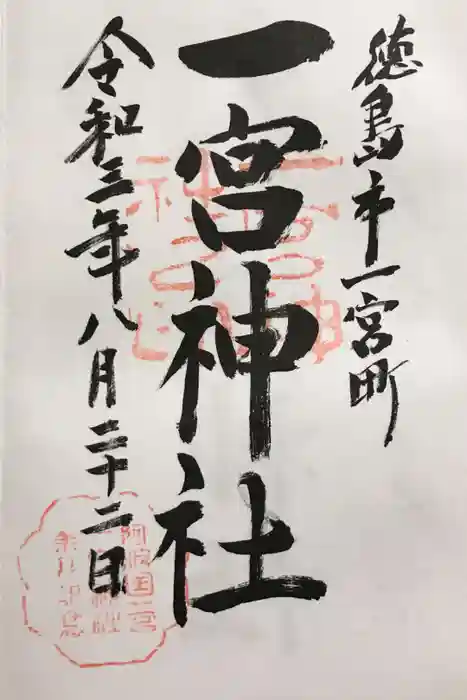 徳島市一宮町
一宮神社
令和三年八月二十二日
阿波国一宮